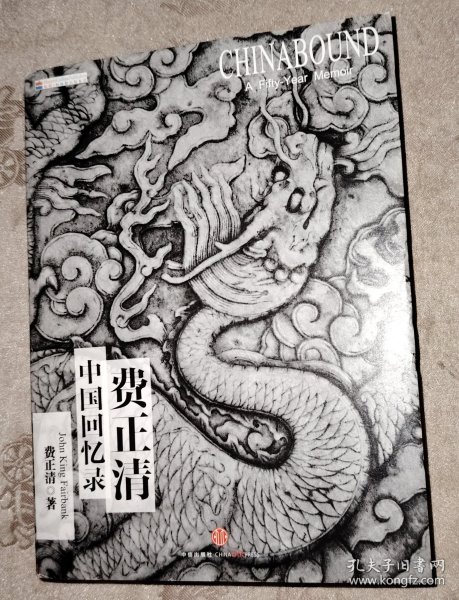 CHINABOUND
A Fifty-Year Memoir
费正清
中国回忆录
John King Fairbank
费正清◎著
中信出版社·CHINA CITIC PRESS
孔夫子旧书网
www.kongfz.com